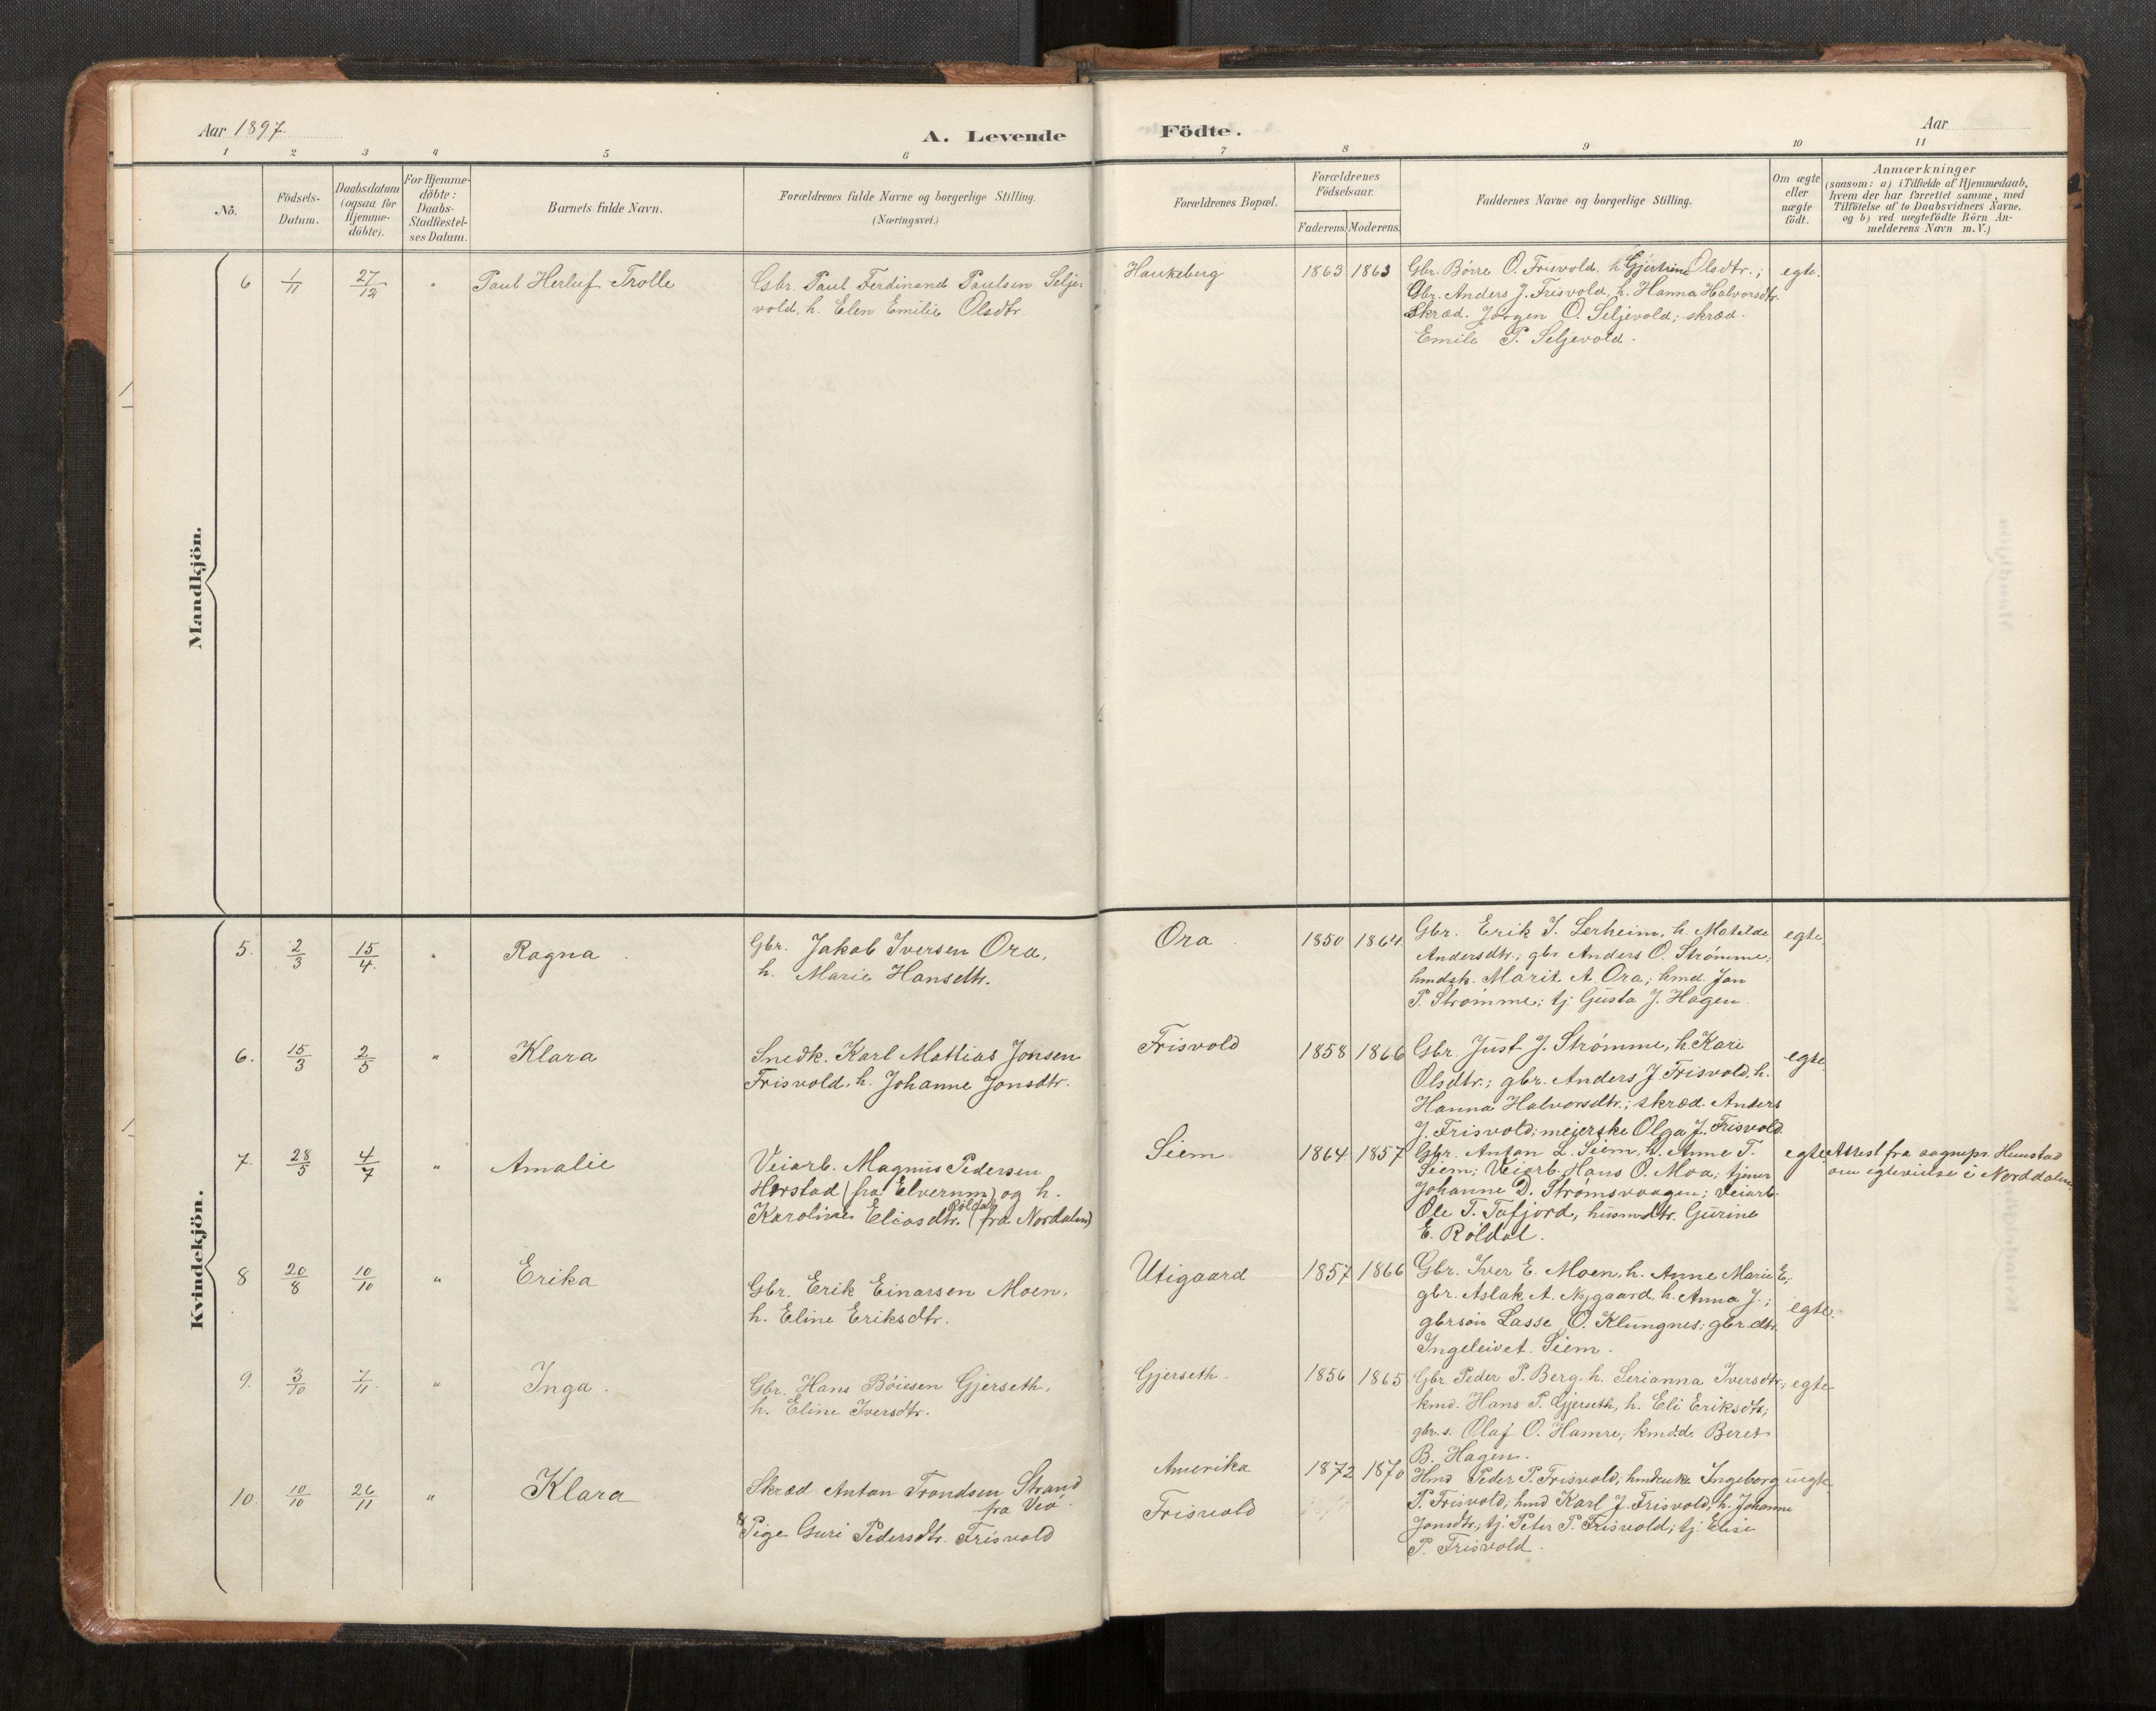 Aar 1897.
A. Levende Födte.
Aar
1 2 3 4 5 6 7 8 9 10 11
No.
Födsels-Datum.
Daabsdatum (ogsaa for Hjemme-döbte).
For Hjemme-döbte: Daabs-Stadfæstel-ses Datum.
Barnets fulde Navn.
Forældrenes fulde Navne og borgerlige Stilling.
(Næringsvei.)
Forældrenes Bopæl.
Forældrenes Födselsaar.
Faderens. Moderens.
Faddernes Navne og borgerlige Stilling.
Om ægte eller uægte födt.
Anmærkninger
(saasom: a) i Tilfælde af Hjemmedaab,
hvem der har forrettet samme, med
Tilföielse af to Daabsvidners Navne.
og b) ved uægtefödte Börn An-
melderens Navn m.V.)
Mandkjön.
6 1/11 27/12 " Paul Herluf Trolle
Gbr. Paul Ferdinand Paulsen Selje-
vold, h. Elen Emilie Olsdtr.
Haukeberg 1863 1863
Gbr. Børre O. Frisvold, h. Gjertine Olsdtr.;
Gbr. Anders J. Frisvold, h. Hanna Halvorsdtr.
Skræd. Jørgen O. Seljevold; skræd.
Emile P. Seljevold.
egte.
Kvindekjön.
5. 2/3 15/4. " Ragna
Gbr. Jakob Iversen Ora,
h. Marie Hansdtr.
Ora 1850 1864
Gbr. Erik J. Lerheim, h. Matilde
Andersdtr.; gbr Anders O. Strømme;
hmdsk. Marit A. Ora; hmd. Jon
P. Strømme; tj. Gusta J. Hagen
egte.
6. 15/3 2/5 " Klara
Snedk. Karl Mathias Jonsen
Frisvold, h. Johanne Jonsdtr.
Frisvold 1858 1866
Gbr. Just J. Strømme, h. Kari
Olsdtr.; gbr. Anders J. Frisvold, h.
Hanna Halvorsdtr.; skræd. Anders
J. Frisvold; meierske Olga J. Frisvold.
egte.
7. 28/5 4/7 " Amalie
Veiarb. Magnus Pedersen
Horstad (fra Elverum) og h.
Karoline Eliasdtr. Röldal (fra Nordalen)
Siem 1864 1857
Gbr. Anton L. Siem, h. Anne T.
Siem; Veiarb. Hans O. Moa; tjener
Johanne D. Strømsvaagen; Veiarb.
Ole T. Tafjord, husmdtr. Gurine
E. Röldal.
egte
Attest fra sognepr. Hunstad
om egtevielse i Norddalen.
8 20/8 10/10 " Erika
Gbr. Erik Einarsen Moen,
h. Eline Eriksdtr.
Utigaard 1857 1866
Gbr. Iver E. Moen, h. Anne Marie E.;
gbr. Aslak A. Nygaard, h. Anna J.;
gbrsøn Lasse O. Klungnes; gbr.dtr.
Ingeleivet Siem.
egte.
9. 3/10 7/11. " Inga.
Gbr. Hans Böiesen Gjerseth,
h. Eline Iversdtr.
Gjerseth. 1856 1865
Gbr. Peder P. Berg, h. Serianna Iversdtr.;
kmd. Hans P. Gjerseth, h. Eli Eriksdtr;
gbr. s. Olaf O. Hamre; kmd.d. Beret
B. Hagen.
egte
10 10/10 26/11 " Klara
Skræd. Anton Trondsen Strand
fra Veö.
& Pige Guri Pedersdtr. Frisvold
Amerika
Frisvold
1872 1870
Hmd Peder P. Frisvold; hmdenke Ingeborg
P. Frisvold; hmd Karl J. Frisvold, h. Johanne
Jonsdtr; tj. Peter P. Frisvold; tj. Elise
P. Frisvold.
uegte